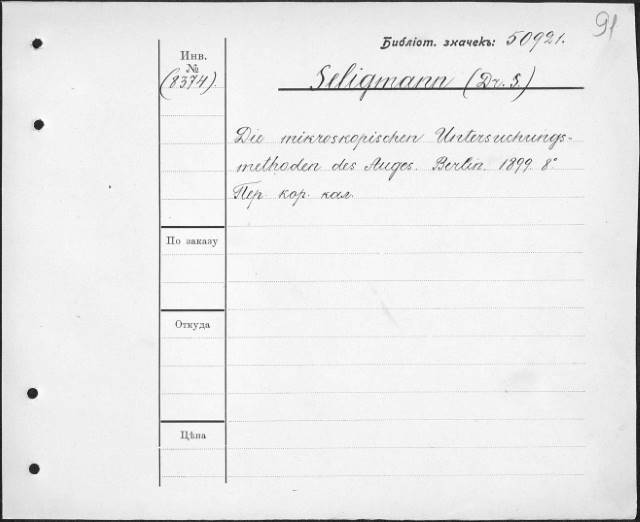 91
Библіот. значекъ: 50921.
Инв.
№
(8374).
Seligmann (Dr. S.)
Die mikroskopischen Untersuchungs-
methoden des Auges. Berlin. 1899. 8°
Пер. кор. кал.
По заказу
Откуда
Цѣна